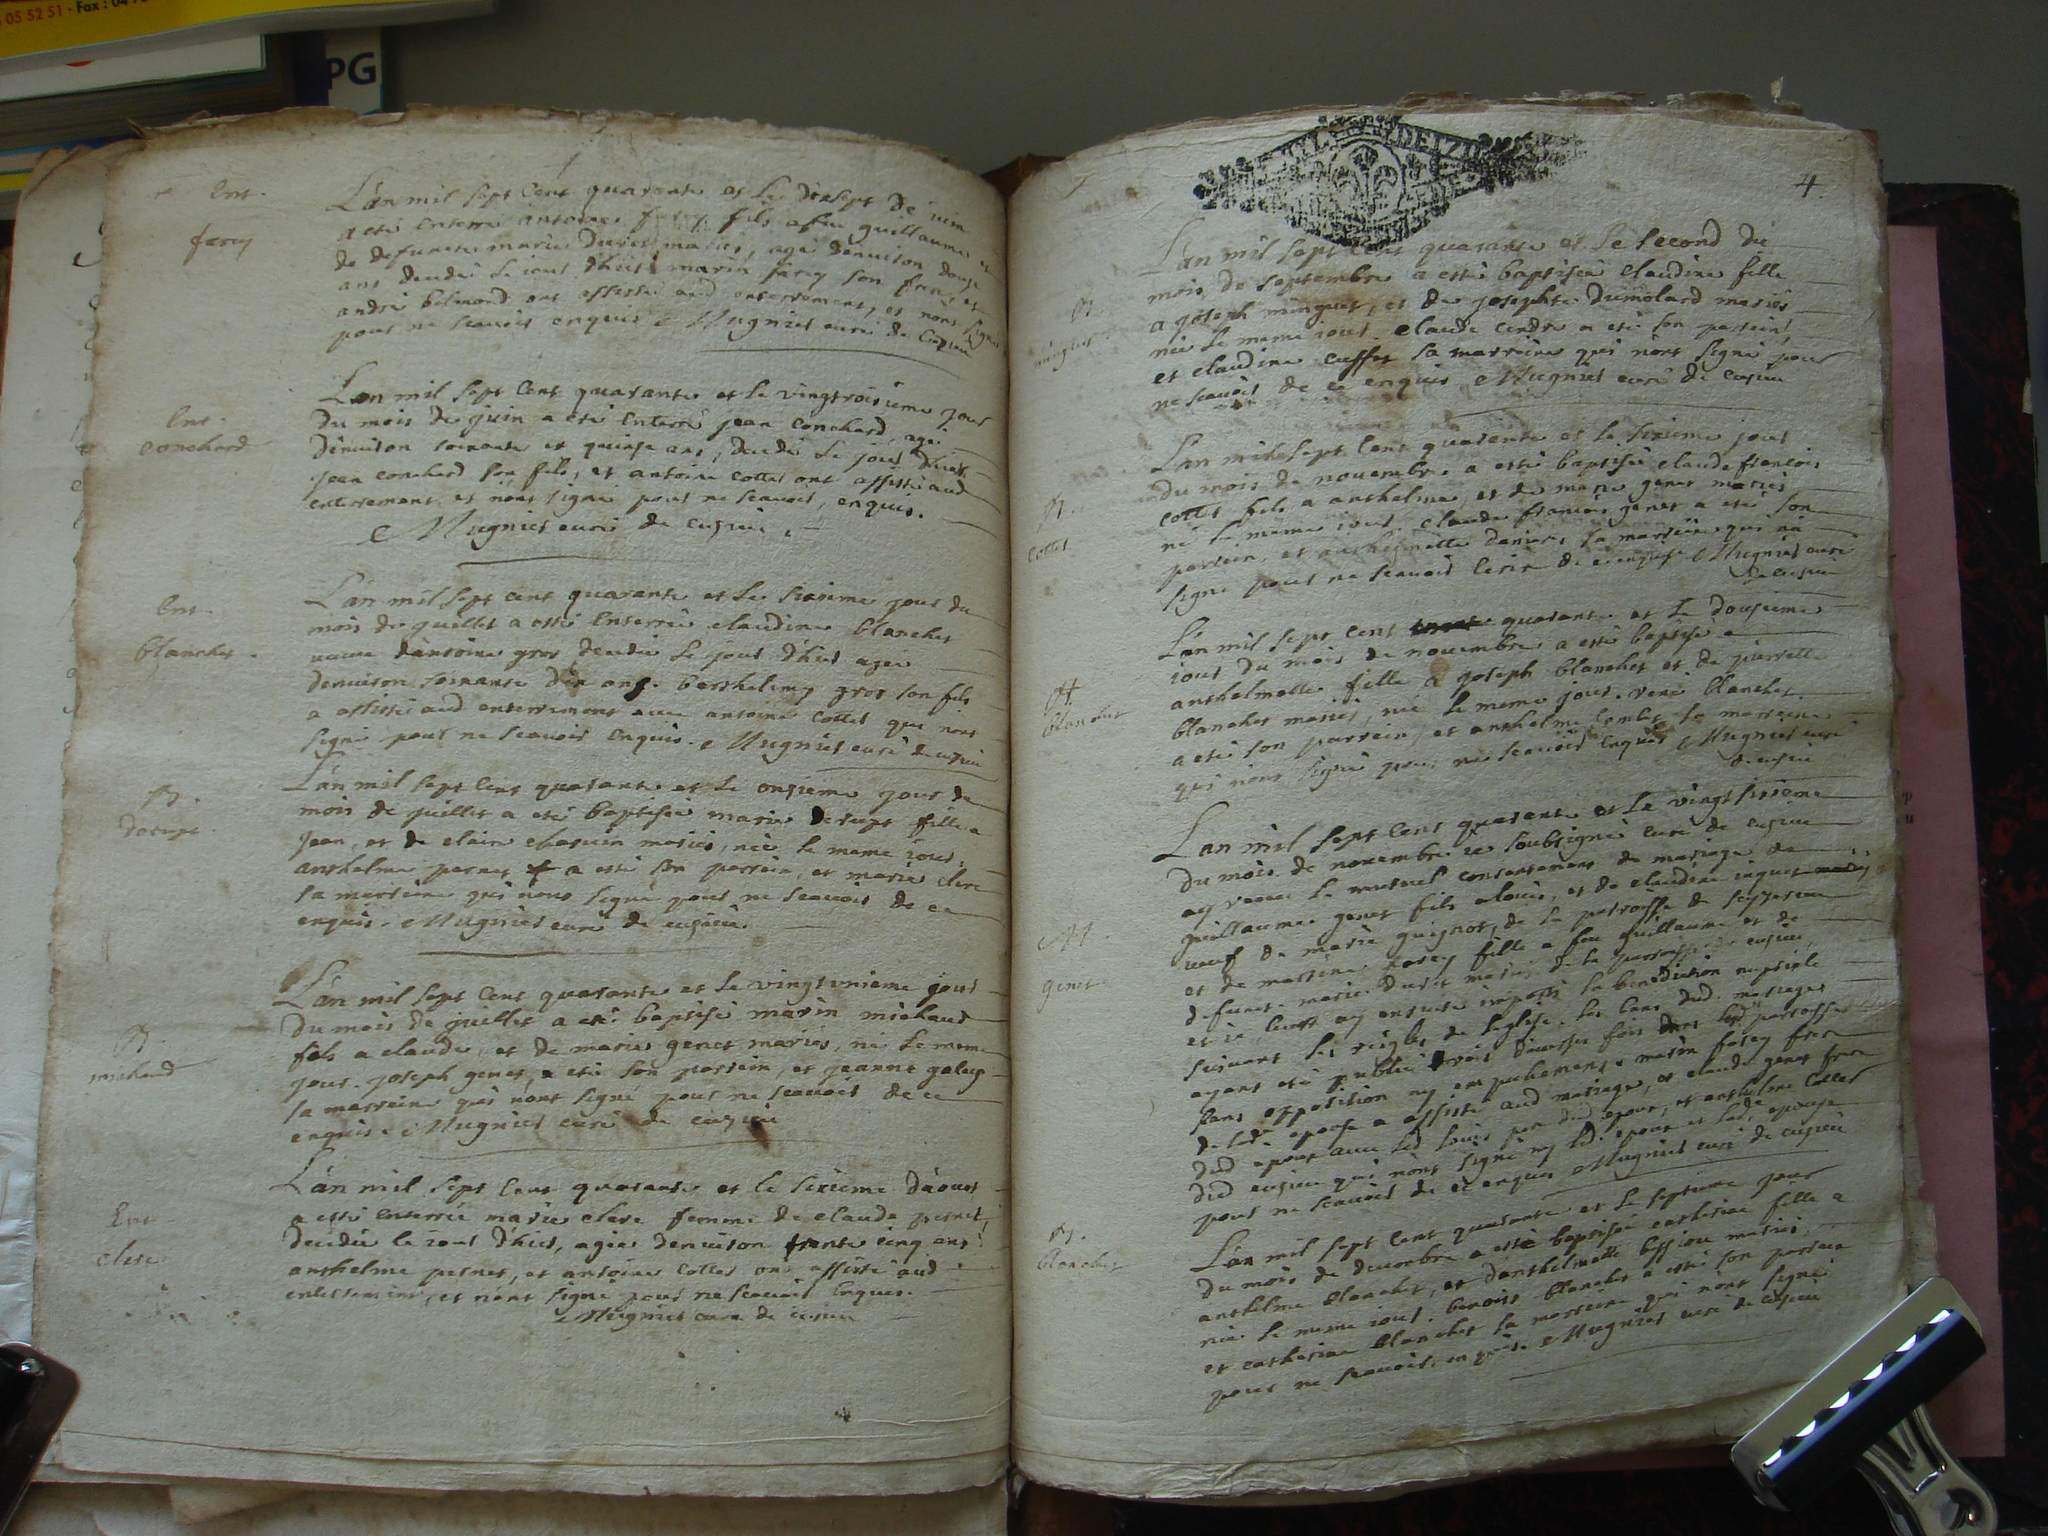 05 52 51 - Fax : 04
PG
Ent.
farey
L'an mil sept cent quarante et le dixsept de juin
a été enterré antoine farey fils a feu guillaume et
de defuncte marie Duret mariés, agé denviron douze
ans decedé le jour d'hier marin farey son frere et
andré bélmond ont assisté aud enterrement, et n'ont signé
pour ne scavoir enquis Mugnier curé de Cuzieu
Ent.
conchard
L'an mil sept cent quarante et le vingtroisieme jour
du mois de juin a été enterré jean conchard, agé
denviron soixante et quinze ans, decedé le jour d'hier
jean conchard son fils, et antoine cottet ont assisté aud
enterrement et n'ont signé pour ne scavoir, enquis.
Mugnier curé de cuzieu.
Ent.
blanchet.
L'an mil sept cent quarante et le sixieme jour du
mois de juillet a esté enterrée claudine blanchet
veuve d'antoine gros, decedée le jour d'hier agee
denviron soixante dix ans. barthelemy gros son fils
a assisté aud enterrement avec antoine cottet qui n'ont
signé pour ne scavoir enquis. Mugnier curé de cuzieu
B.
Derupt.
L'an mil sept cent quarante et le onzieme jour du
mois de juillet a eté baptisée marie derupt fille a
jean, et de claire mariés, née le meme jour,
anthelme pernet a esté son parrein, et marie clerc
sa marreine qui n'ont signé pour ne scavoir de ce
enquis. Mugnier curé de cuzieu.
B.
michaud
L'an mil sept cent quarante et le vingtunieme jour
du mois de juillet a eté baptisé marin michaud
fils a claude, et de marie genet mariés, né le meme
jour. joseph genet, a eté son parrein, et jeanne
sa marreine qui n'ont signé pour ne scavoir de ce
enquis. Mugnier curé de cuzieu
Ent.
clerc
L'an mil sept cent quarante et le sixieme d'aoust
a esté enterrée marie clerc femme de claude pernet,
decedée le jour d'hier, agée denviron trente cinq ans
anthelme pernet, et antoine cottet ont assisté aud
enterrement, et n'ont signé pour ne scavoir enquis.
Mugnier curé de cuzieu
4
B
minguet
L'an mil sept cent quarante et le second du
mois de septembre a esté baptisée claudine fille
a joseph minguet, et de josephte Dumolard mariés
née le meme jour. claude cendre a eté son parrein,
et claudine cuffet sa marreine qui n'ont signé pour
ne scavoir de ce enquis Mugnier curé de cuzieu
B.
cottet
L'an mil sept cent quarante et le sixieme jour
du mois de novembre a esté baptisé claude francois
cottet fils a anthelme, et de marie genet mariés
né le meme jour. claude francois genet a eté son
parrein, et anthelmette sa marreine qui n'a
signé pour ne scavoir ecrire de ce enquise Mugnier curé
de cuzieu
B
blanchet
L'an mil sept cent quarante et le douzieme
jour du mois de novembre a esté baptisée
anthelmette fille a joseph blanchet et de pierrette
blanchet mariés, née le meme jour. rené blanchet
a eté son parrein, et anthelme sa marreine
qui n'ont signé pour ne scavoir enquis Mugnier curé
de cuzieu
M.
genet
L'an mil sept cent quarante et le vingt sixieme
du mois de novembre je soubsigné curé de cuzieu
ay receu le mutuel consentement de mariage de
guillaume genet fils a louis, et de claudine
veuf de marie guignot, de la parroisse de
et de marreine farey fille a feu guillaume et de
defuncte marie Duret mariés de la parroisse de cuzieu,
et je leurs ay ensuite imparti la benediction nuptiale
suivant les regles de l'eglise. les bans dud. mariage
ayant eté publié trois diverses fois dans lesd parroisses
sans opposition ny empechement. marin farey frere
de lade epouse a assisté aud mariage, et claude genet frere
dud epoux avec led louis pere dud epoux, et anthelme cottet
dud cuzieu qui n'ont signé ny led. epoux et lade epouse
pour ne scavoir de ce enquis Mugnier curé de cuzieu
B.
blanchet
L'an mil sept cent quarante et le septieme jour
du mois de decembre a esté baptisée catherine fille a
anthelme blanchet, et d'anthelmette mariés
née le meme jour. benoist blanchet a esté son parrein
et catherine blanchet sa marreine qui n'ont signé
pour ne scavoir, enquis. Mugnier curé de cuzieu